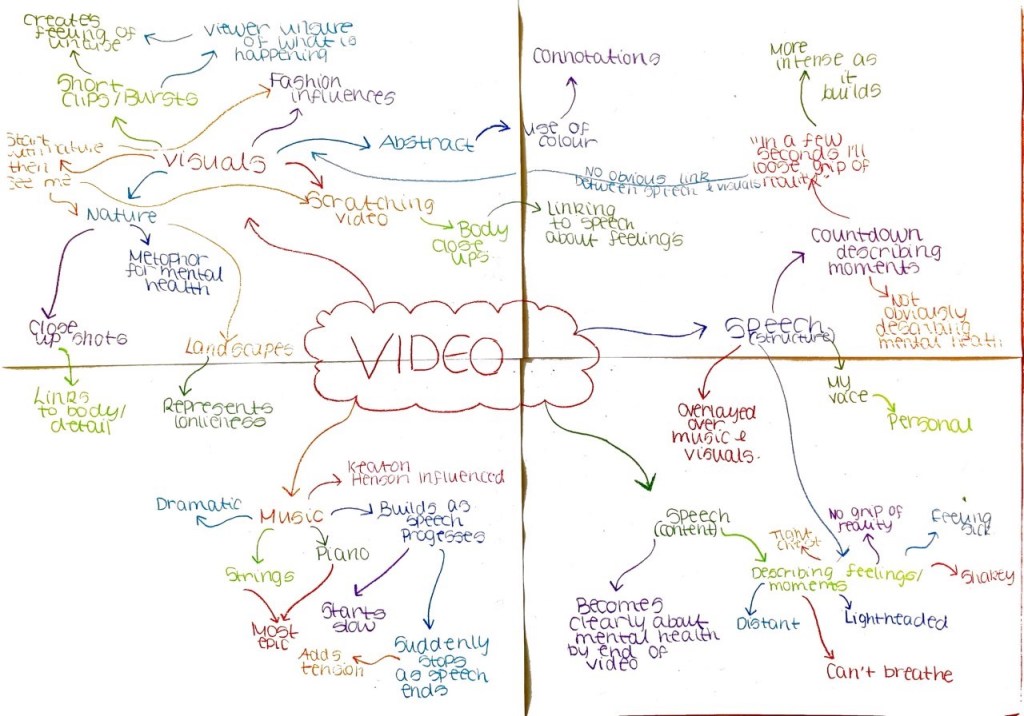 creates
feeling of
unease
viewer unsure
of what is
happening
Short
clips/Bursts
Fashion
influences
Start
with nature
then
see me
Visuals
Abstract
Nature
Scratching
video
Body
close
ups
Metaphor
for mental
health
Close
up shots
Landscapes
Links
to body/
detail
Represents
lonlieness
connotations
use of
colour
More
intense as
it
builds
"In a few
seconds I'll
loose grip of
reality"
No obvious link
between speech & visuals
Linking
to speech
about feelings
countdown
describing
moments
Not
obviously
describing
mental
VIDEO
Speech
(structure)
My
voice
Personal
overlayed
over
music &
visuals.
Keaton
Henson influenced
Dramatic
Music
Builds as
speech
progesses
Piano
Strings
Most
epic
Starts
slow
Adds
tension
Suddenly
stops
as speech
ends
Speech
(content)
Tight
chest
No grip of
reality
Feeling
sick
Describing feelings/
moments
Shakey
Becomes
clearly about
mental health
by end of
video
Distant
Lightheaded
Can't breathe